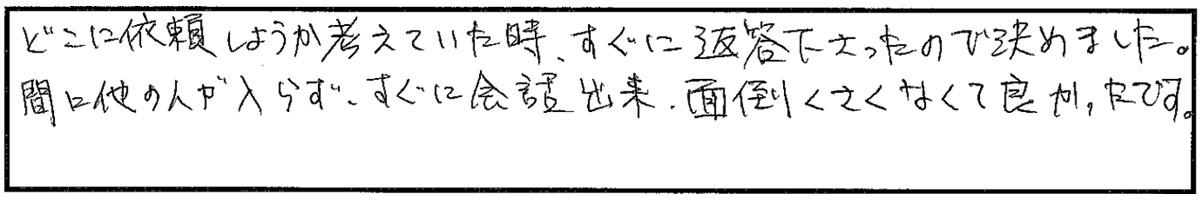 どこに依頼しようか考えていた時、すぐに返答下さったので決めました。
間に他の人が入らず、すぐに会話出来、面倒くさくなくて良かったです。